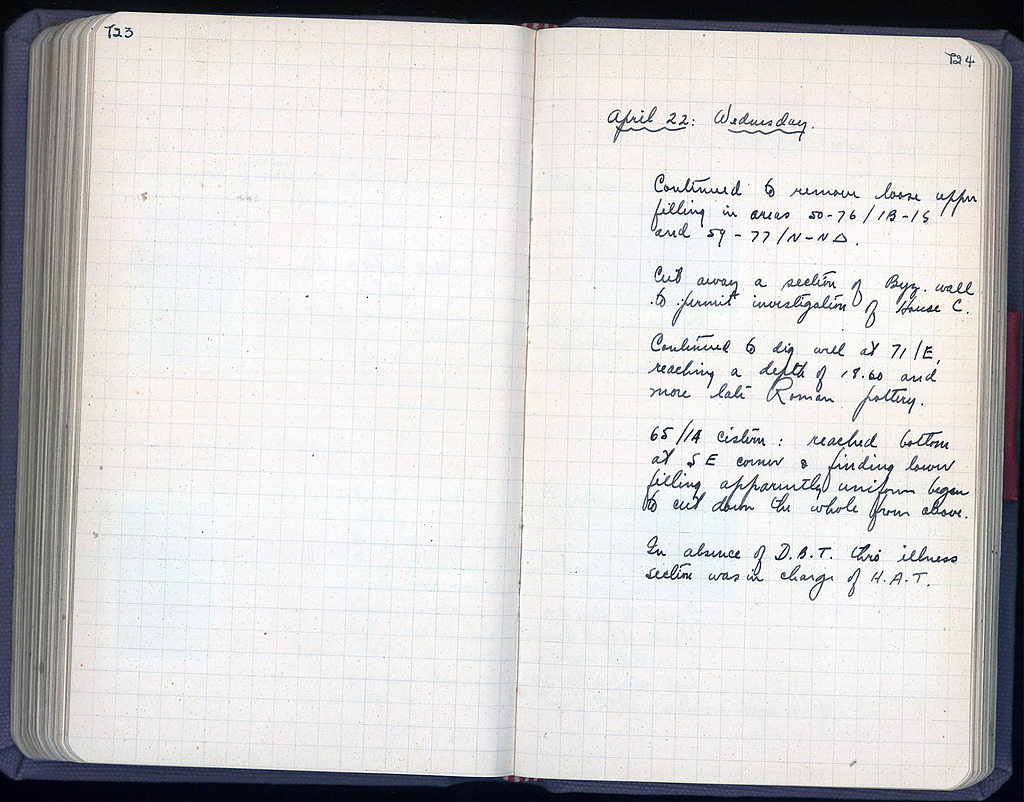 723
724
April 22: Wednesday.
Continued to remove loose upper
filling in areas 50-76/IB-IS
and 59-77/N-NΔ.
Cut away a section of Byz. wall
to permit investigation of House C.
Continued to dig well at 71/E,
reaching a depth of 18.60 and
more late Roman pottery.
65/IA cistern: reached bottom
at SE corner & finding lower
filling apparently uniform began
to cut down the whole from above.
In absence of D.B.T. thro illness
section was in charge of H.A.T.